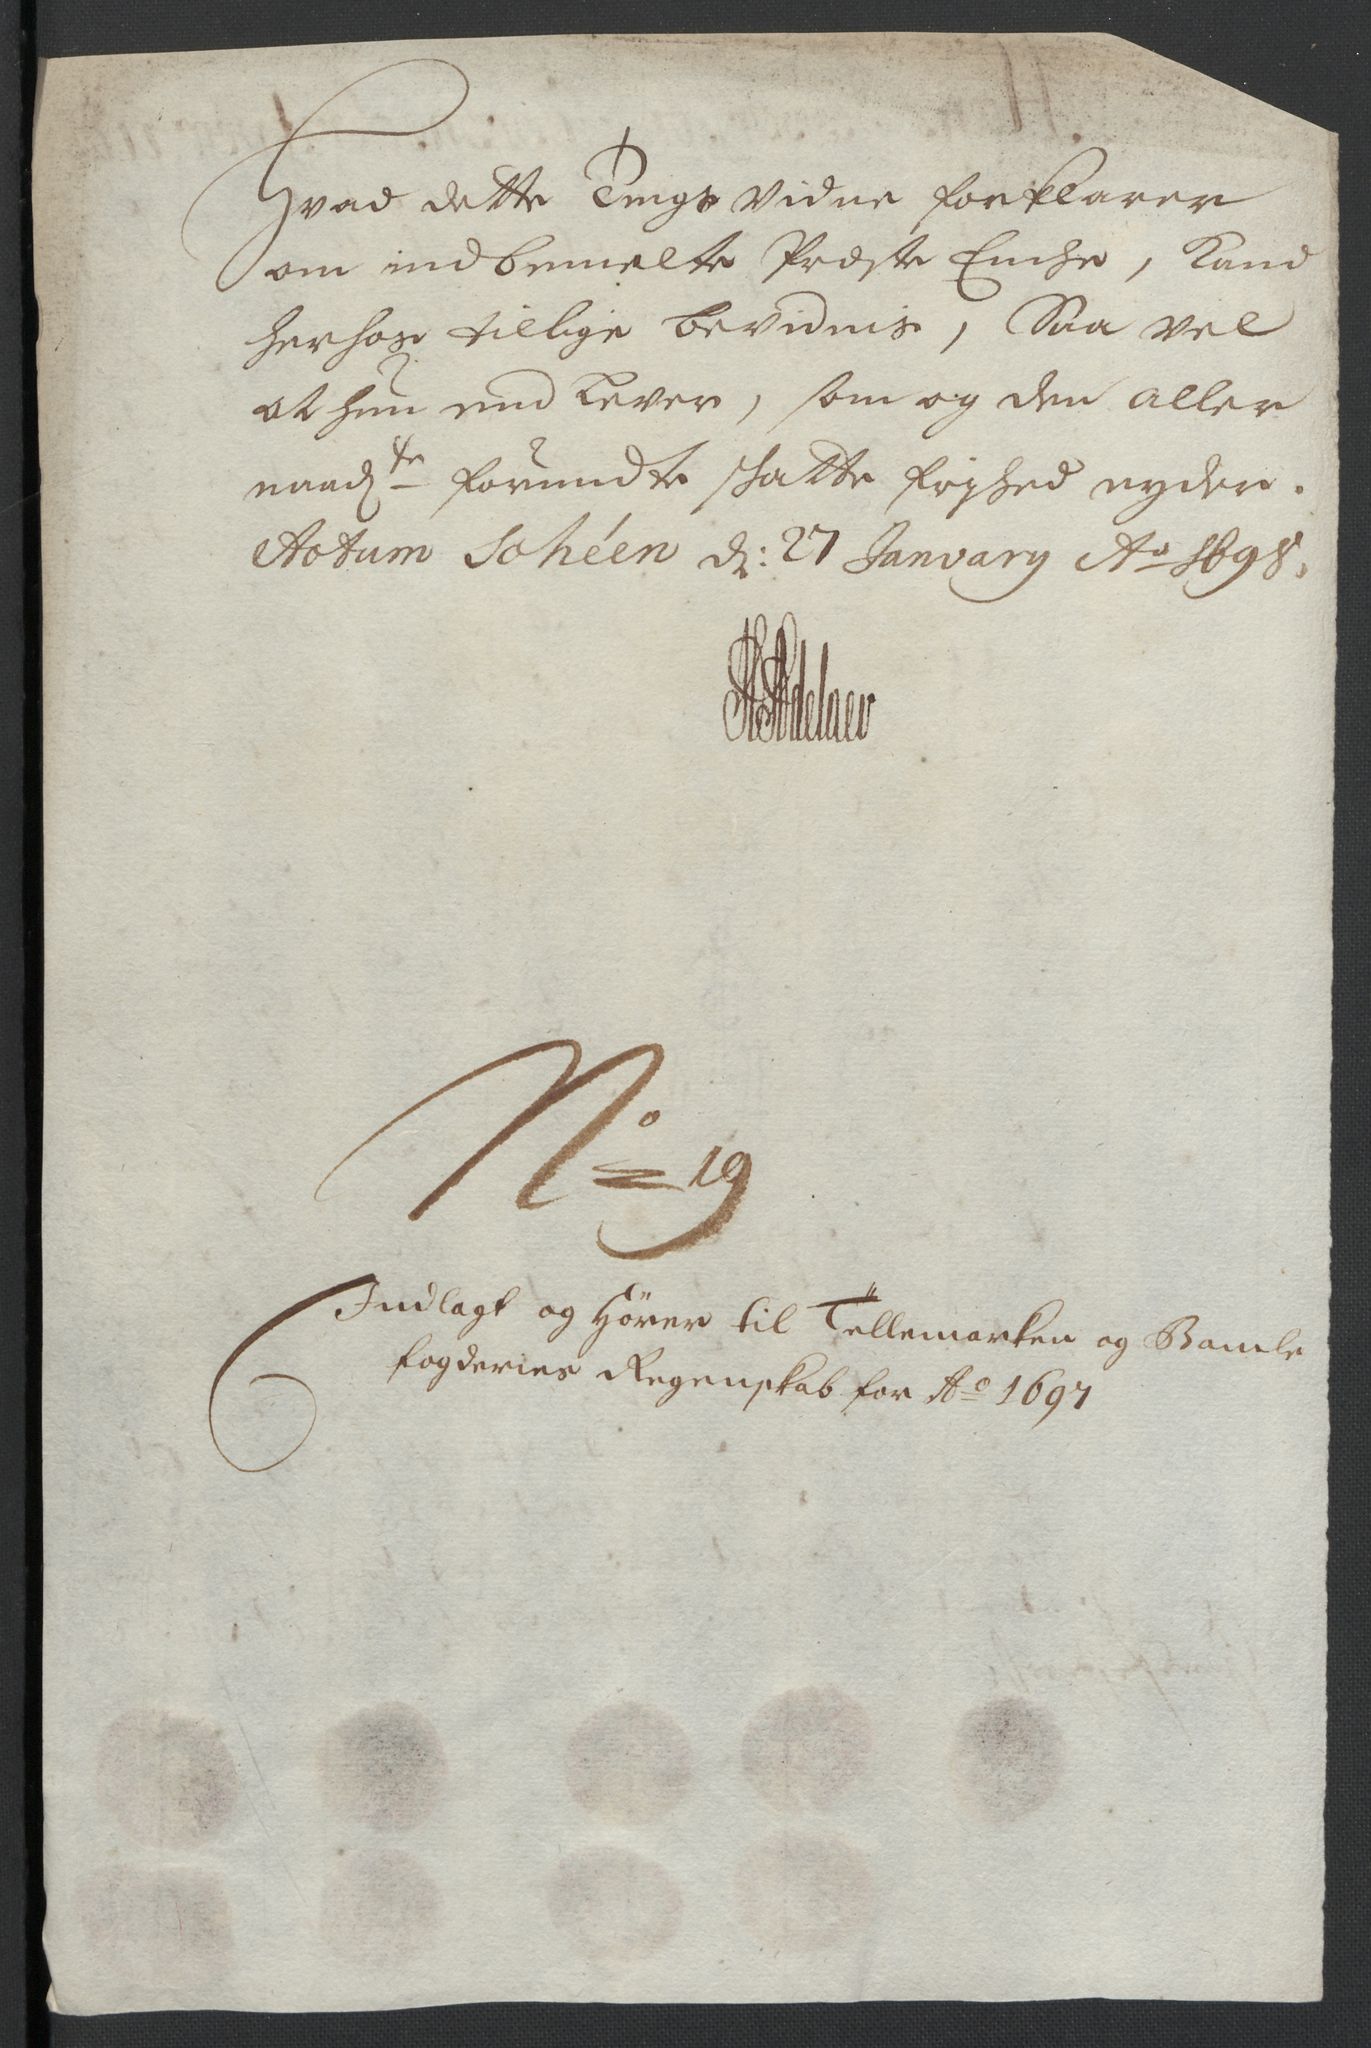 Hvad dette Tings Vidne forklarer
om indbemelte Præste Encke, Kand
herhos tillige bevidnis, Saa vel
at hun end Lever, som og den aller
naad^ste forundte skatte frihed nyder.
Actum Schéen d: 27 January Ao 1698.
HAdelaer
No 19
Indlagt og Hörer til Tellemarken og Bamle
fogderies Regenskab for Ao 1697